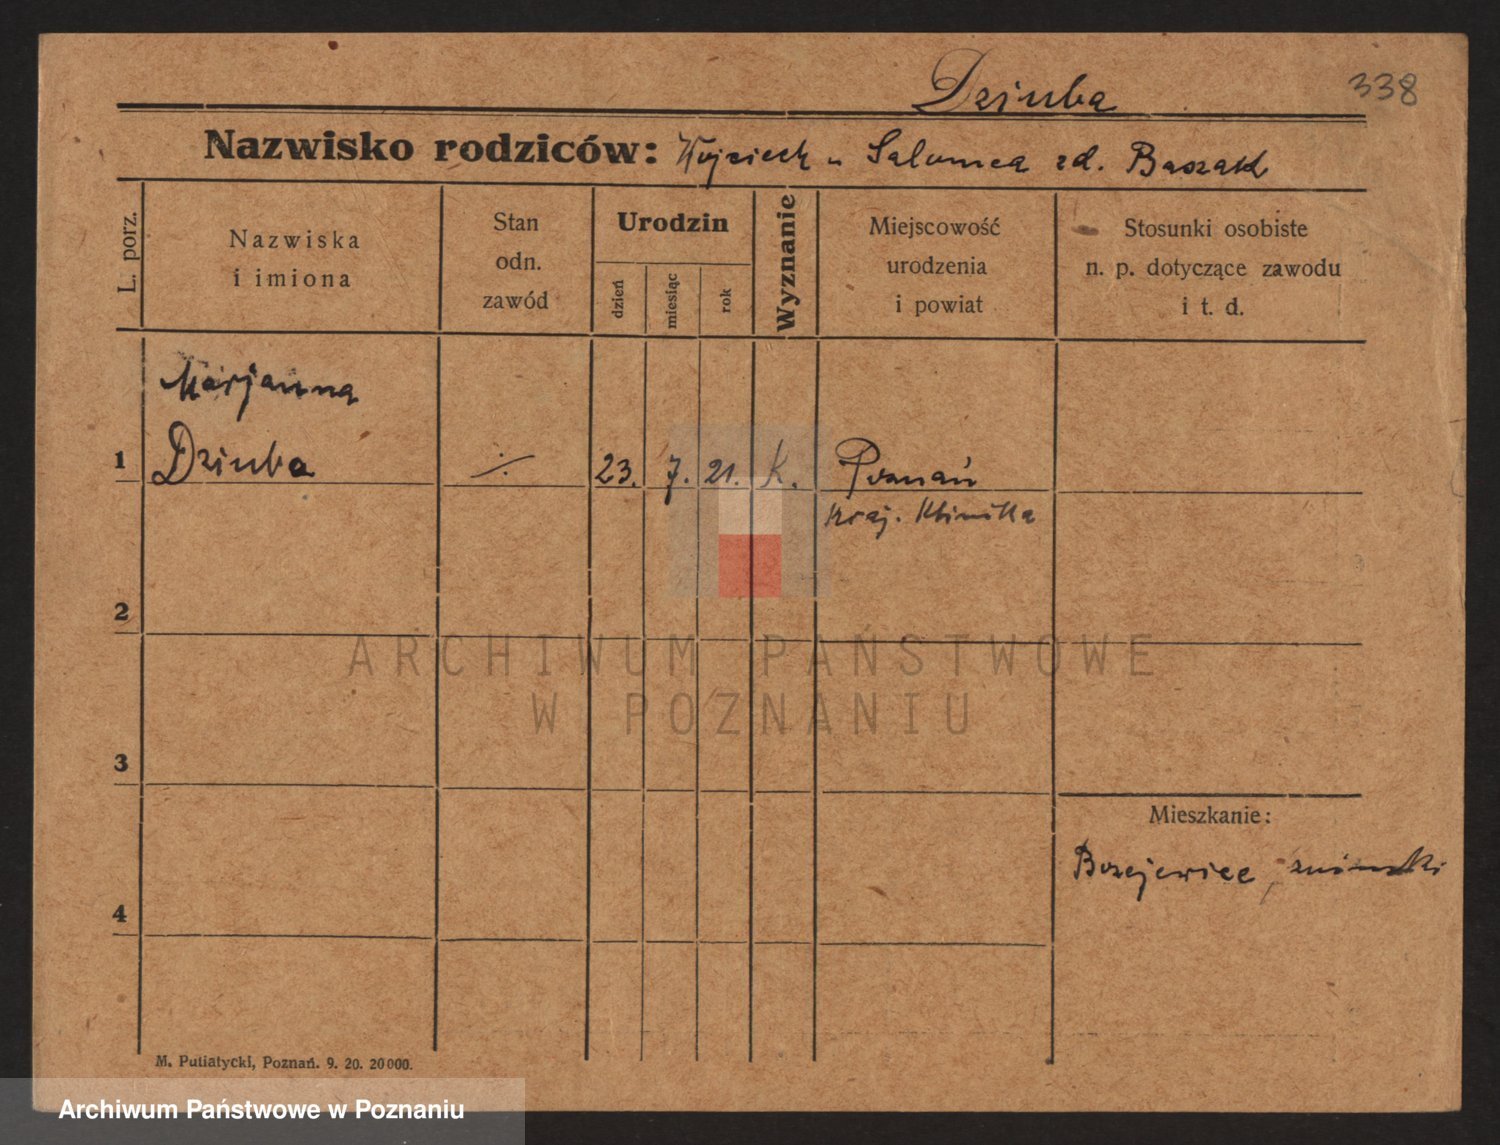 Dziuba 338
Nazwisko rodziców: Wojciech u Salomea zd. Baszak
L. porz.
Nazwiska
i imiona
Stan
odn.
zawód
Urodzin
dzień
miesiąc
rok
Wyznanie
Miejscowość
urodzenia
i powiat
Stosunki osobiste
n. p. dotyczące zawodu
i t. d.
Marjanna
1 Dziuba ·/· 23. 7. 21. K. Poznań
Kraj. Klinika
2
ARCHIWUM PAŃSTWOWE
W POZNANIU
3
Mieszkanie:
Bożejewice, żniński
4
M. Putiatycki, Poznań. 9. 20. 20000.
Archiwum Państwowe w Poznaniu